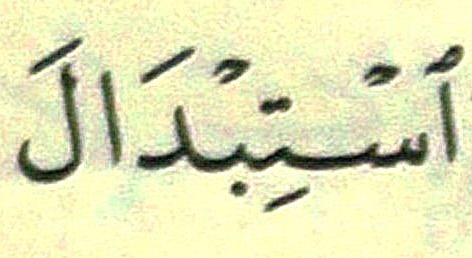 ٱسْتِبْدَالَ